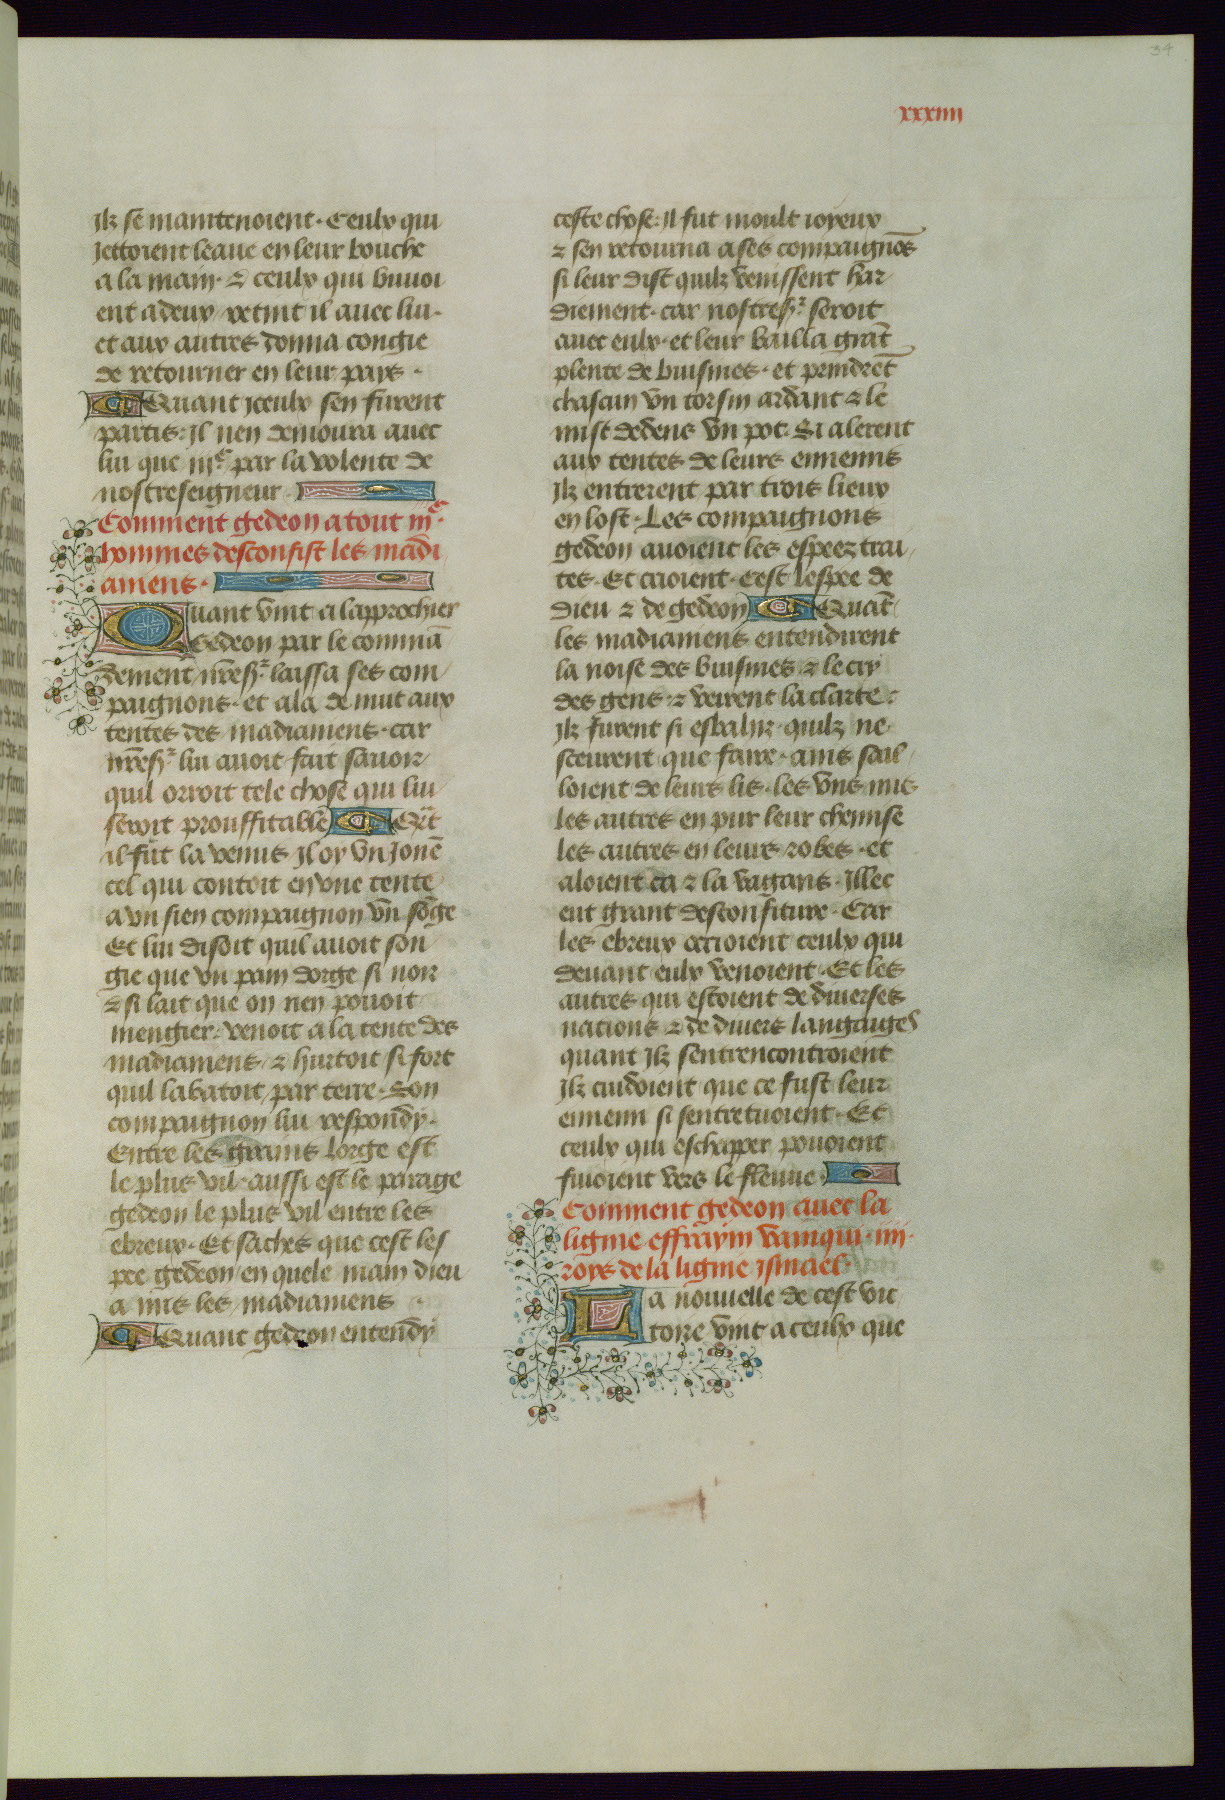 34
xxxiiii
Ilz se maintenoient. Ceulx qui
Jettoient leaue en leur bouche
a la main. ⁊ ceulx qui buuoi
ent adeux retint il auec lui.
et aux autres donna congie
de retourner en leur pays.
Quant iceulx sen furent
partis. Il nen demoura auec
lui que iijᶜ par la volente de
nostreseigneur
Comment gedeon atout iijᶜ.
hommes desconfist les madi
aniens.
Quant vint a lapprochier
Gedeon par le commā
dement nr̄es̄ʳ laissa ses com
paignons. et ala de nuit aux
tentes des madianiens. car
nr̄es̄ʳ lui auoit fait sauoir
quil orroit tele chose qui lui
seroit prouffitable
il fut la venus Il oy vn Jone
cel qui contoit en vne tente
a vn sien compaignon vn sōge
Et lui disoit quil auoit son
gie que vn pain dorge si noir
⁊ si lait que on nen pouoit
mengier. venoit a la tente des
madianiens ⁊ hurtoit si fort
quil labatoit par terre. Son
compaignon lui respondy.
Entre les grains lorge est
le plus vil. aussi est le parage
gedeon le plus vil entre les
ebreux. Et saches que cest les
pee gedeon en quele main dieu
a mis les madianiens
Quant gedeon entendy
ceste chose. Il fut moult ioyeux
⁊ sen retourna a ses compaignōs
si leur dist quilz venissent har
diement. car nostres̄ʳ seroit
auec eulx. et leur bailla grāt
plente de buisines. et prindrēt
chascun vn torsin ardant ⁊ le
mist dedens vn pot. Si alerent
aux tentes de leurs ennemis
Ilz entrerent par trois lieux
en lost. Les compaignons
gedeon auoient les espeez trai
tes. Et crioient. Cest lespee de
dieu ⁊ de gedeon Quāt
les madianiens entendirent
la noise des buisines ⁊ le cry
des gens ⁊ veirent la clarte.
Ilz furent si esbahiz. quilz ne
sceurent que faire. ains sail
loient de leurs lis. les vns nus
les autres en pur leur chemise
les autres en leurs robes. et
aloient ca ⁊ la vagans. Illec
eut grant desconfiture. Car
les ebreux occioient ceulx qui
deuant eulx venoient. Et les
autres qui estoient de diuerses
nations ⁊ de diuers langaiges
quant Ilz sentrencontroient
Ilz cuidoient que ce fust leur
ennemi si sentretuoient. Et
ceulx qui eschapper pouoient
fuioient vers le fleuue.
Comment gedeon auec la
lignie effraym vainqui. iiii.
roys de la lignie ismael.
La nouuelle de cest vic
toire vint a ceulx que